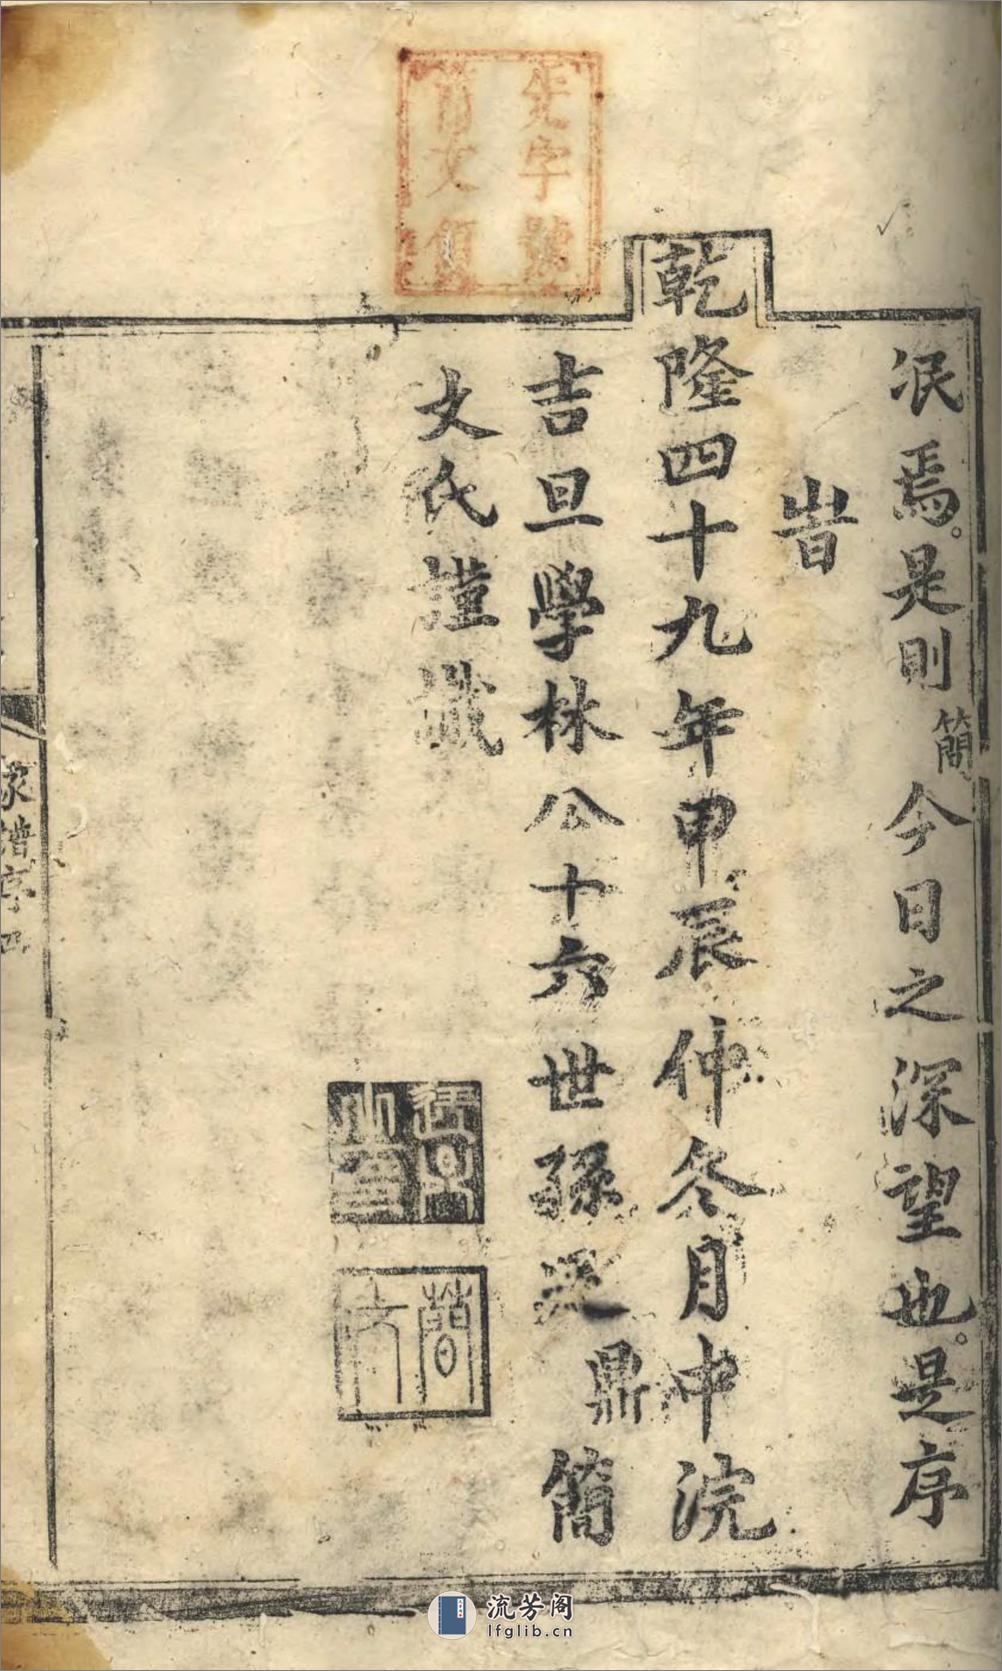 泯焉。是則簡今日之深望也。是序
旹
乾隆四十九年甲辰仲冬月中浣
吉旦學林公十六世孫廷鼎簡
文氏謹識
字號
文領
簡文
家譜序 四
流芳阁
lfglib.cn